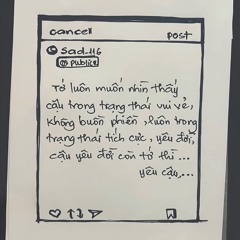 cancel post
sad_116
@public
Tớ luôn muốn nhìn thấy
cậu trong trạng thái vui vẻ,
không buồn phiền, luôn trong
trạng thái tích cực, yêu đời,
cậu yêu đời còn tớ thì...
yêu cậu...